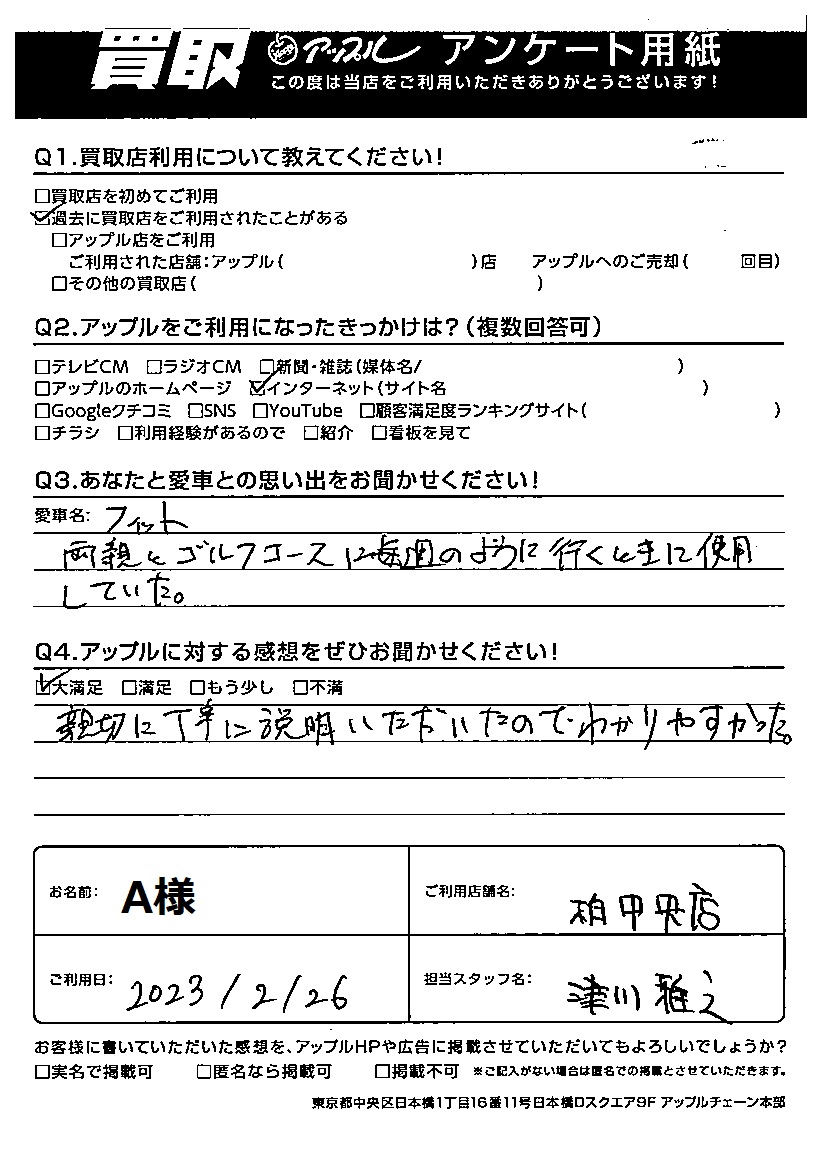 買取 アップル アンケート用紙
この度は当店をご利用いただきありがとうございます！
Q1.買取店利用について教えてください！
□買取店を初めてご利用
☑過去に買取店をご利用されたことがある
□アップル店をご利用
ご利用された店舗：アップル（ ）店 アップルへのご売却（ 回目）
□その他の買取店（ ）
Q2.アップルをご利用になったきっかけは？（複数回答可）
□テレビCM □ラジオCM □新聞・雑誌（媒体名/ ）
□アップルのホームページ ☑インターネット（サイト名 ）
□Googleクチコミ □SNS □YouTube □顧客満足度ランキングサイト（ ）
□チラシ □利用経験があるので □紹介 □看板を見て
Q3.あなたと愛車との思い出をお聞かせください！
愛車名： フィット
両親とゴルフコースに毎週のように行くときに使用
していた。
Q4.アップルに対する感想をぜひお聞かせください！
☑大満足 □満足 □もう少し □不満
親切に丁寧に説明いただいたのでわかりやすかった。
お名前： A様 ご利用店舗名： 柏中央店
ご利用日： 2023/2/26 担当スタッフ名： 津川雅之
お客様に書いていただいた感想を、アップルHPや広告に掲載させていただいてもよろしいでしょうか？
□実名で掲載可 □匿名なら掲載可 □掲載不可 ※ご記入がない場合は匿名での掲載とさせていただきます。
東京都中央区日本橋1丁目16番11号日本橋ロスクエア9F アップルチェーン本部